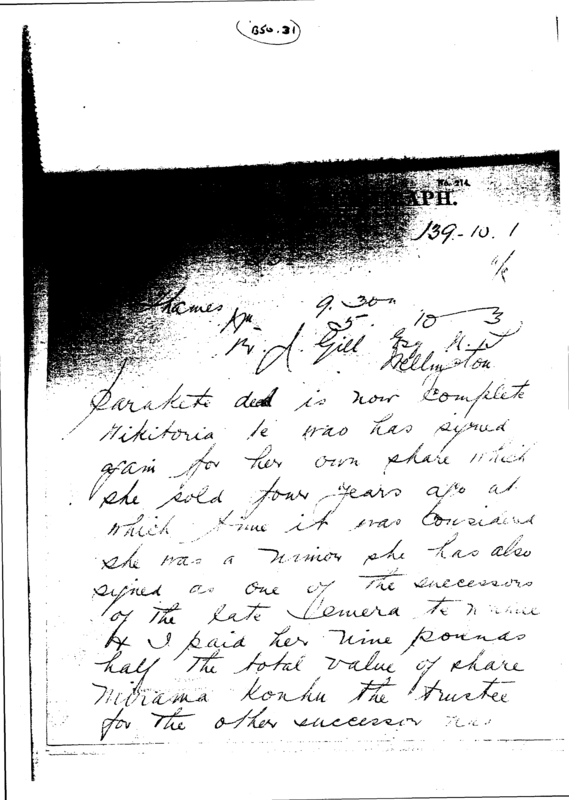 B56.31
No. 214
APH.
139-10. 1
Thames 9.30
85. 10 3
J. Gill Esq
Wellington
Parakete deed is now complete
Wikitoria te has signed
again for her own share which
she sold four years ago at
which time it was considered
she was a minor she has also
signed as one of the successors
of the late te
& I paid her nine pounds
half the total value of share
Mirama the trustee
for the other successor has